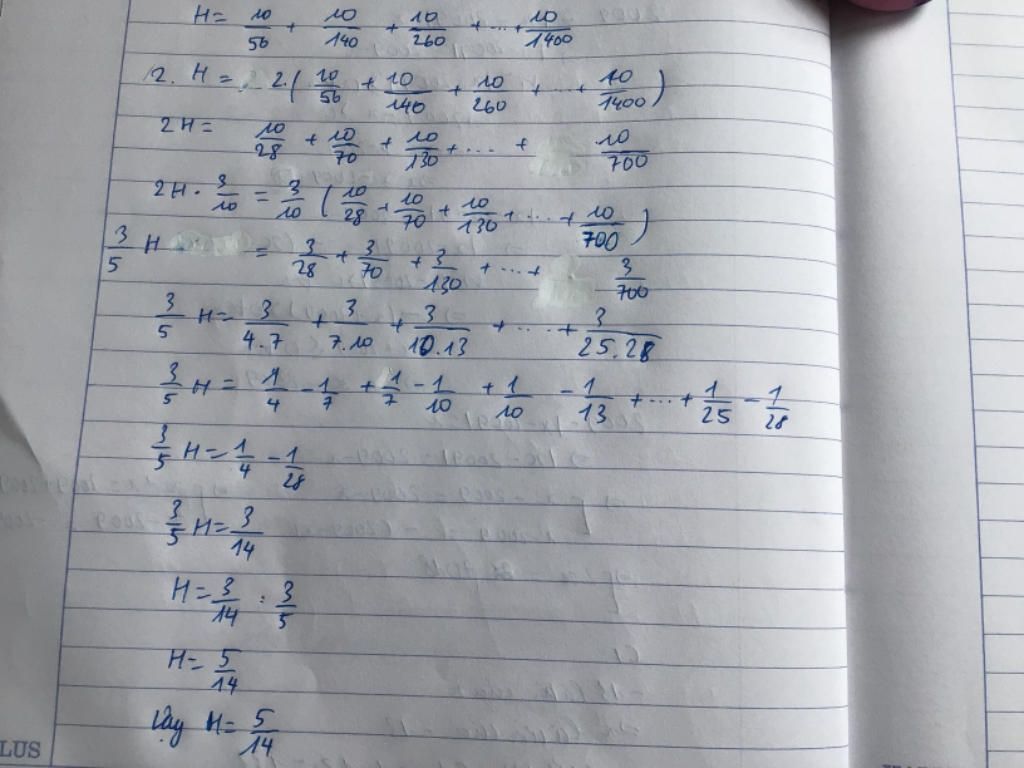 H = 10/56 + 10/140 + 10/260 + ... + 10/1400
2. H = 2.( 10/56 + 10/140 + 10/260 + ... + 10/1400 )
2H = 10/28 + 10/70 + 10/130 + .... + 10/700
2H . 3/10 = 3/10 ( 10/28 + 10/70 + 10/130 + ... + 10/700 )
3/5 H = 3/28 + 3/70 + 3/130 + ... + 3/700
3/5 H = 3/4.7 + 3/7.10 + 3/10.13 + ... + 3/25.28
3/5 H = 1/4 - 1/7 + 1/7 - 1/10 + 1/10 - 1/13 + ... + 1/25 - 1/28
3/5 H = 1/4 - 1/28
3/5 H = 3/14
H = 3/14 : 3/5
H = 5/14
Vậy H = 5/14
LUS